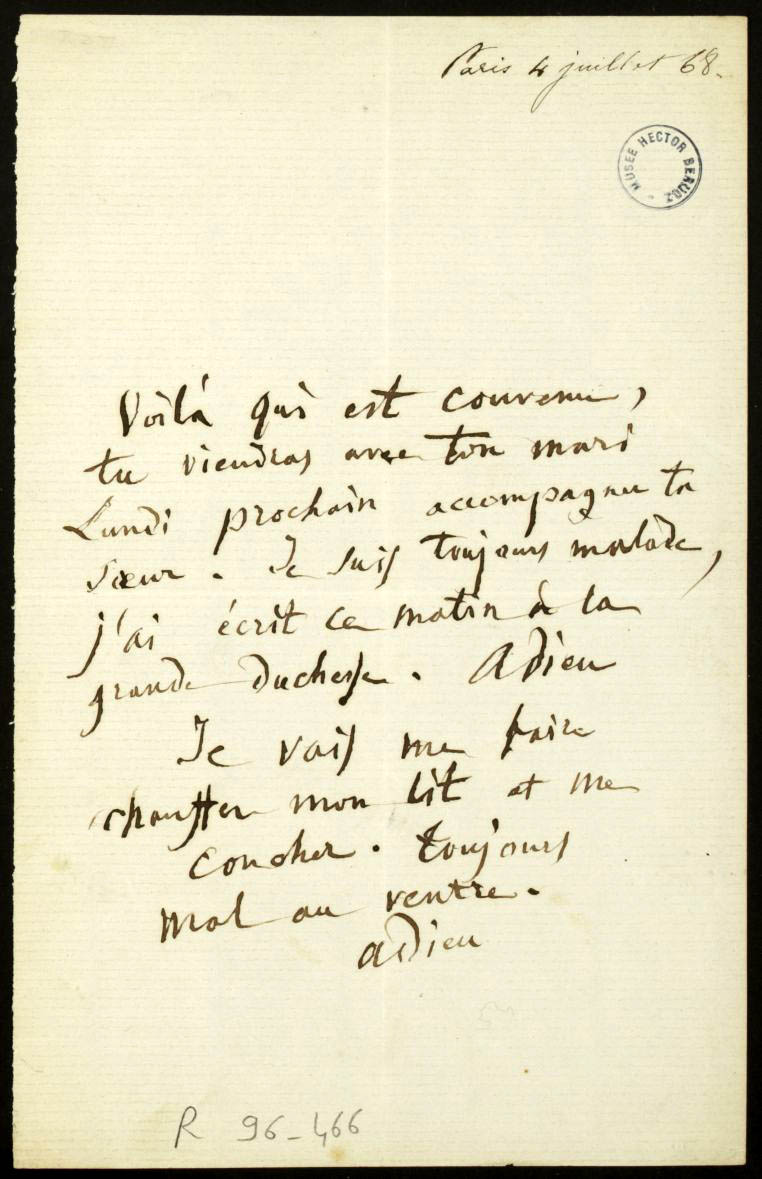 Paris 4 juillet 68.
MUSEE HECTOR BERLIOZ
Voilà qui est convenu,
tu viendras avec ton mari
Lundi prochain accompagner ta
sœur. Je suis toujours malade,
j'ai écrit ce matin à la
grande Duchesse. Adieu
Je vais me faire
chauffer mon lit et me
coucher. toujours
mal au ventre.
adieu
R 96-466